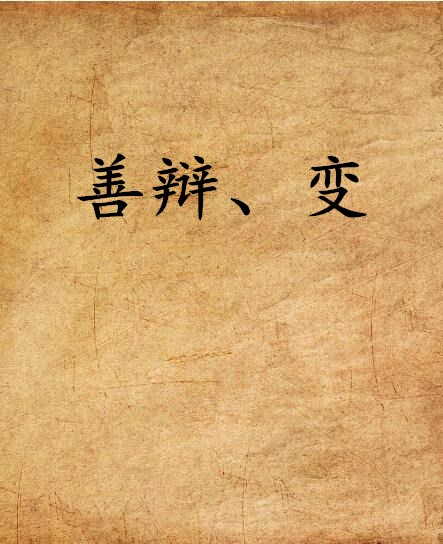 善辩、变